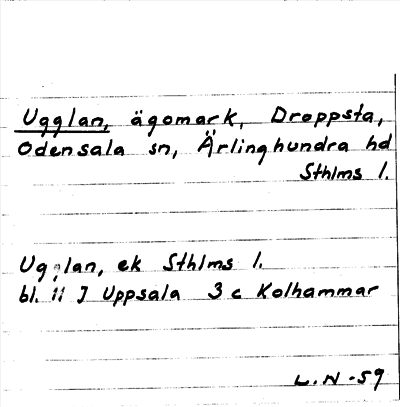 Ugglan, ägomark, Droppsta,
Odensala sn, Ärlinghundra hd
Sthlms l.
Ugglan, ek Sthlms l.
bl. 11 J Uppsala 3 c Kolhammar
L.N-59